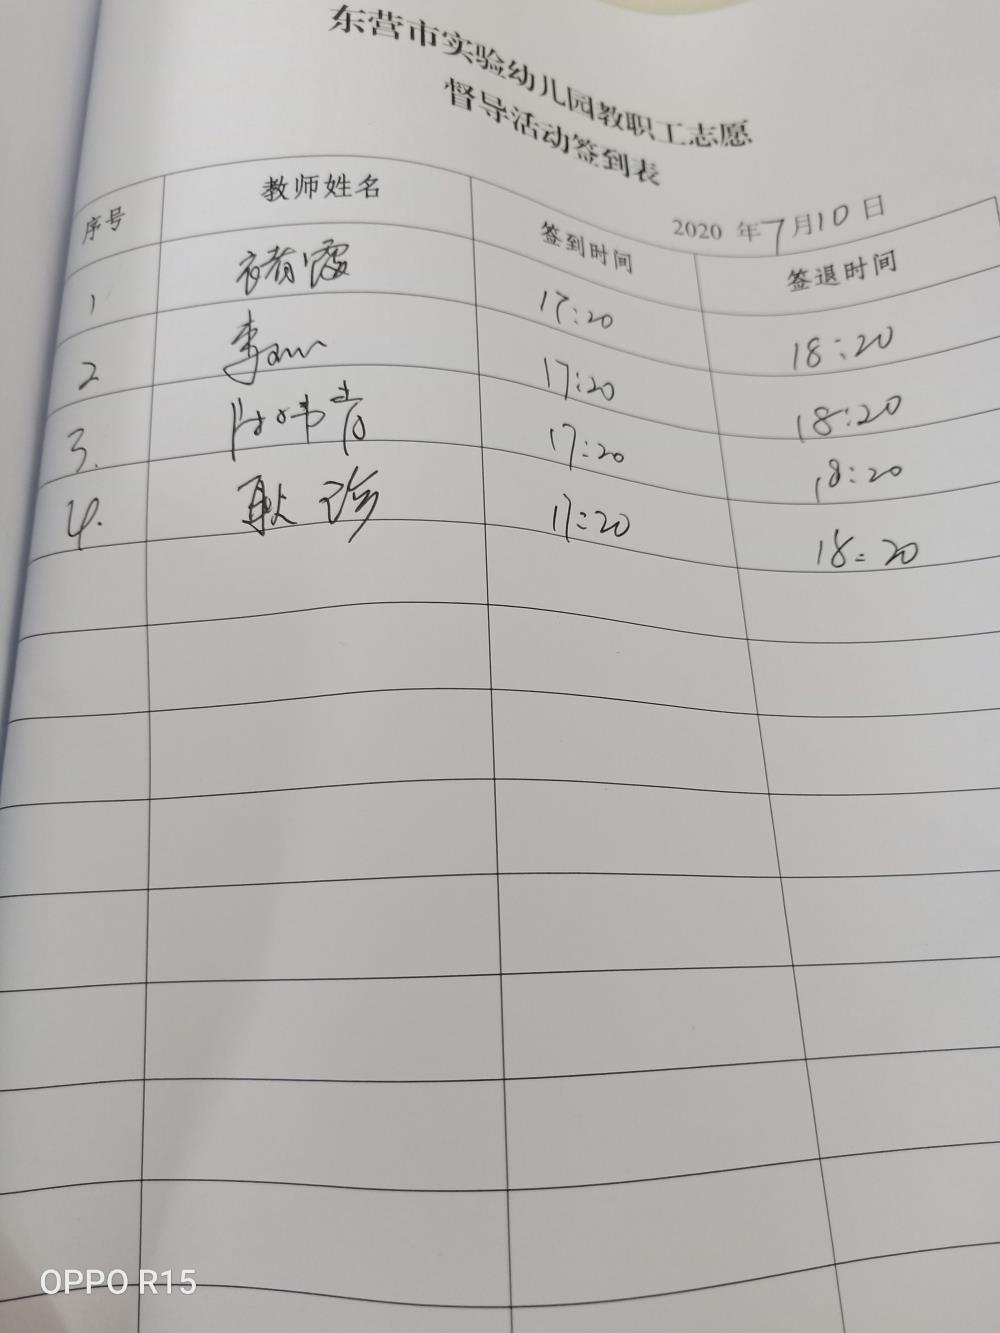 东营市实验幼儿园教职工志愿
督导活动签到表
2020 年 7 月 10 日
序号 教师姓名 签到时间 签退时间
1 褚霞 17:20 18:20
2 李 17:20 18:20
3. 17:20 18:20
4. 耿 17:20 18:20
OPPO R15